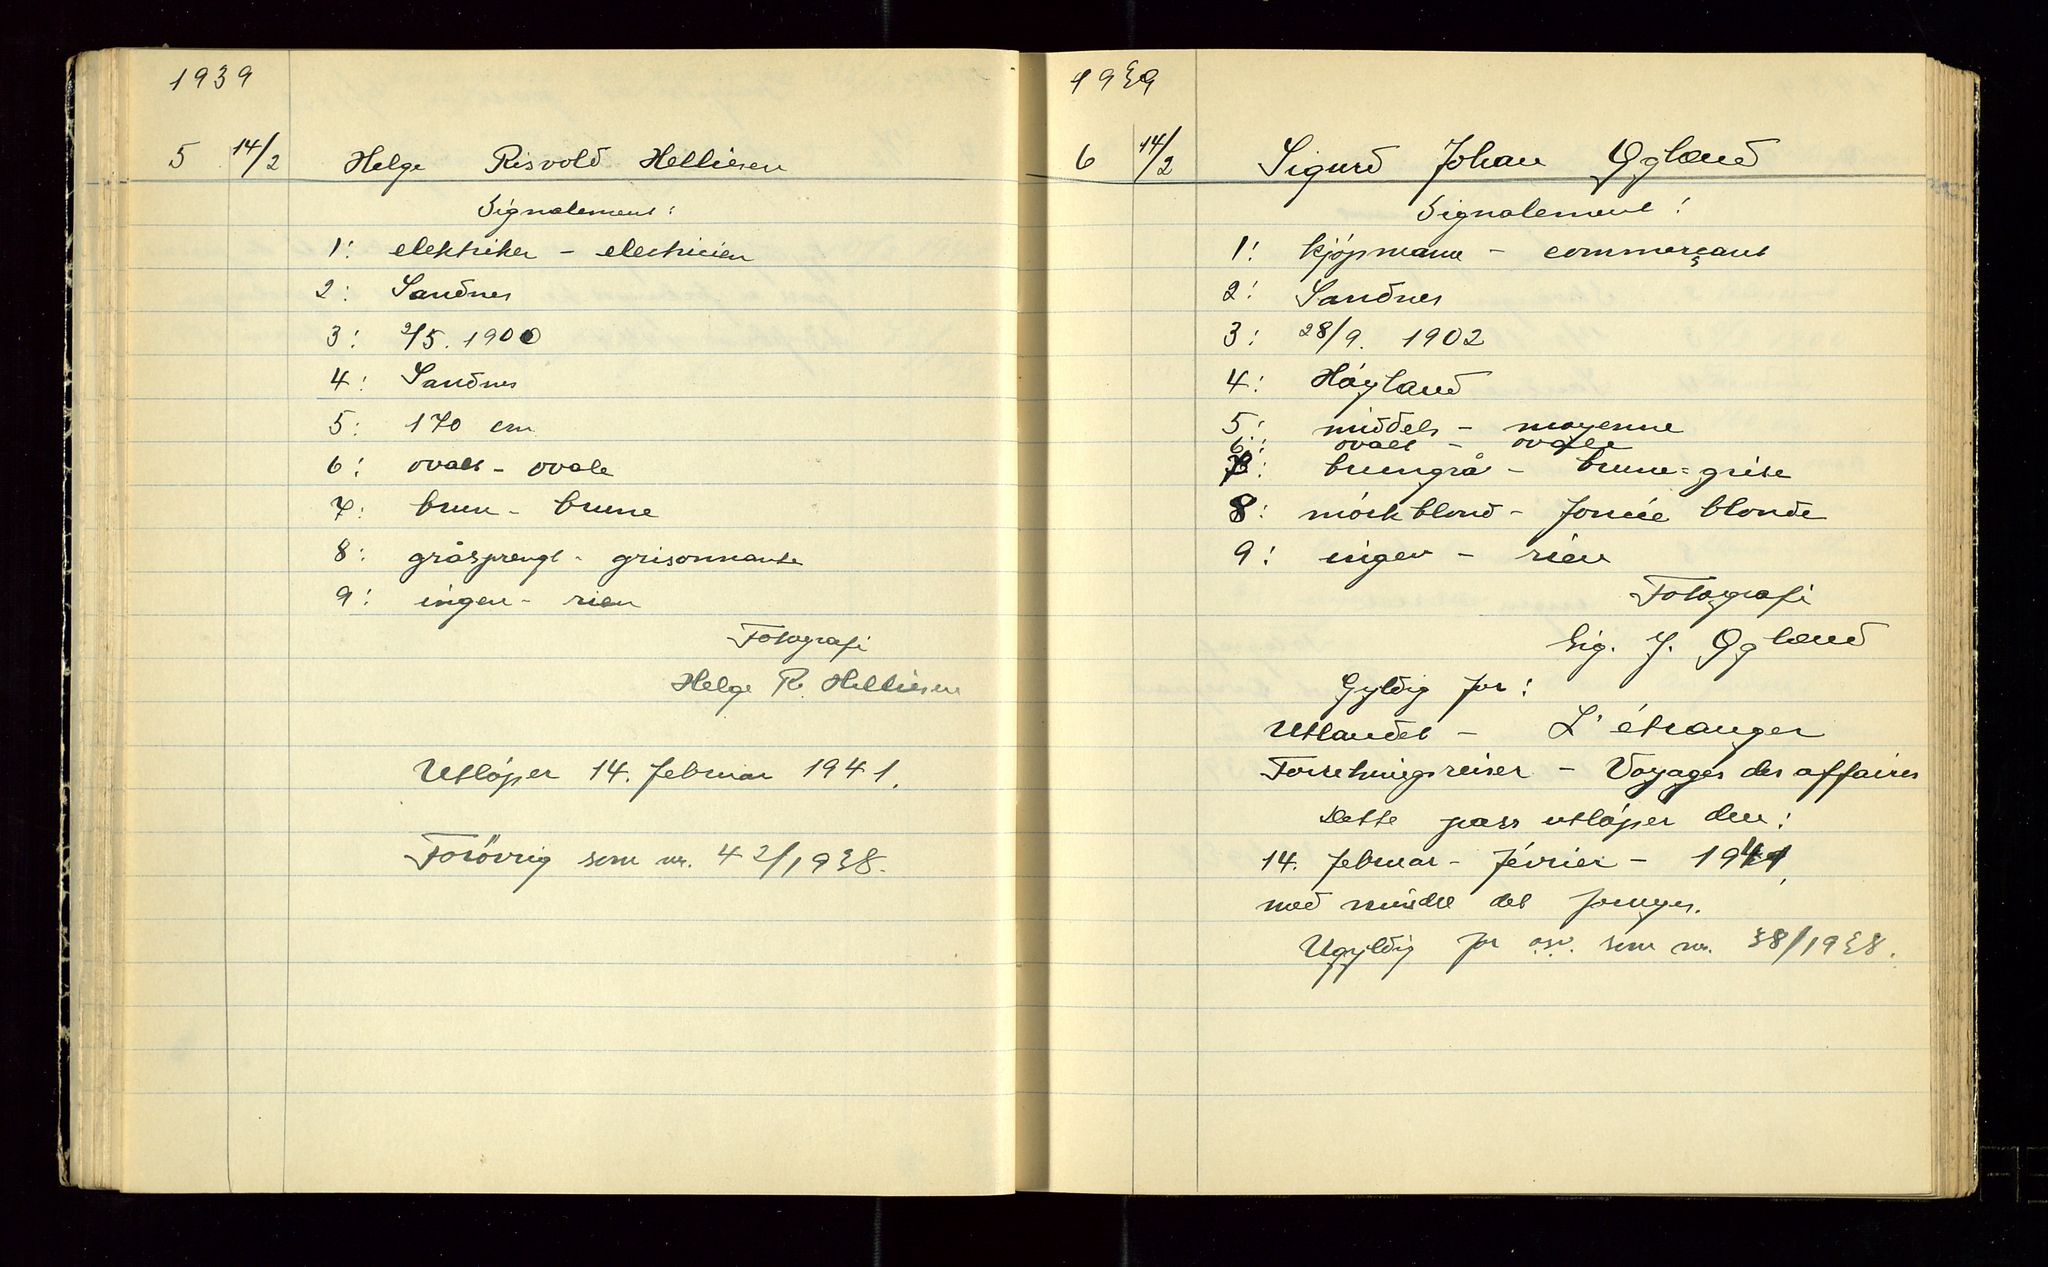 1939
5 14/2 Helge Risvold Helliesen
Signalement:
1: elektriker - electricien
2: Sandnes
3: 2/5. 1900
4: Sandnes
5: 170 cm
6: ovalt - ovale
7: brun - brune
8: gråsprengt - grisonnante
9: ingen - rien
Fotografi
Helge R. Helliesen
Utløper 14. februar 1941.
Forøvrig som nr. 42/1938.
1939
6 14/2 Sigurd Johan Øglænd
Signalement:
1: kjøpmann - commerçant
2: Sandnes
3: 28/9. 1902
4: Høyland
5: middels - moyenne
6: ovalt - ovale
7: brungrå - brune=grise
8: mørk blond - foncée blonde
9: ingen - rien
Fotografi
Sig. J. Øglænd
Gyldig for:
Utlandet - L'étranger
Forretningsreiser - Voyages des affaires
Dette pass utløper den:
14. februar - février - 1941,
med mindre det fornyes.
Ugyldig for osv. som nr. 38/1938.